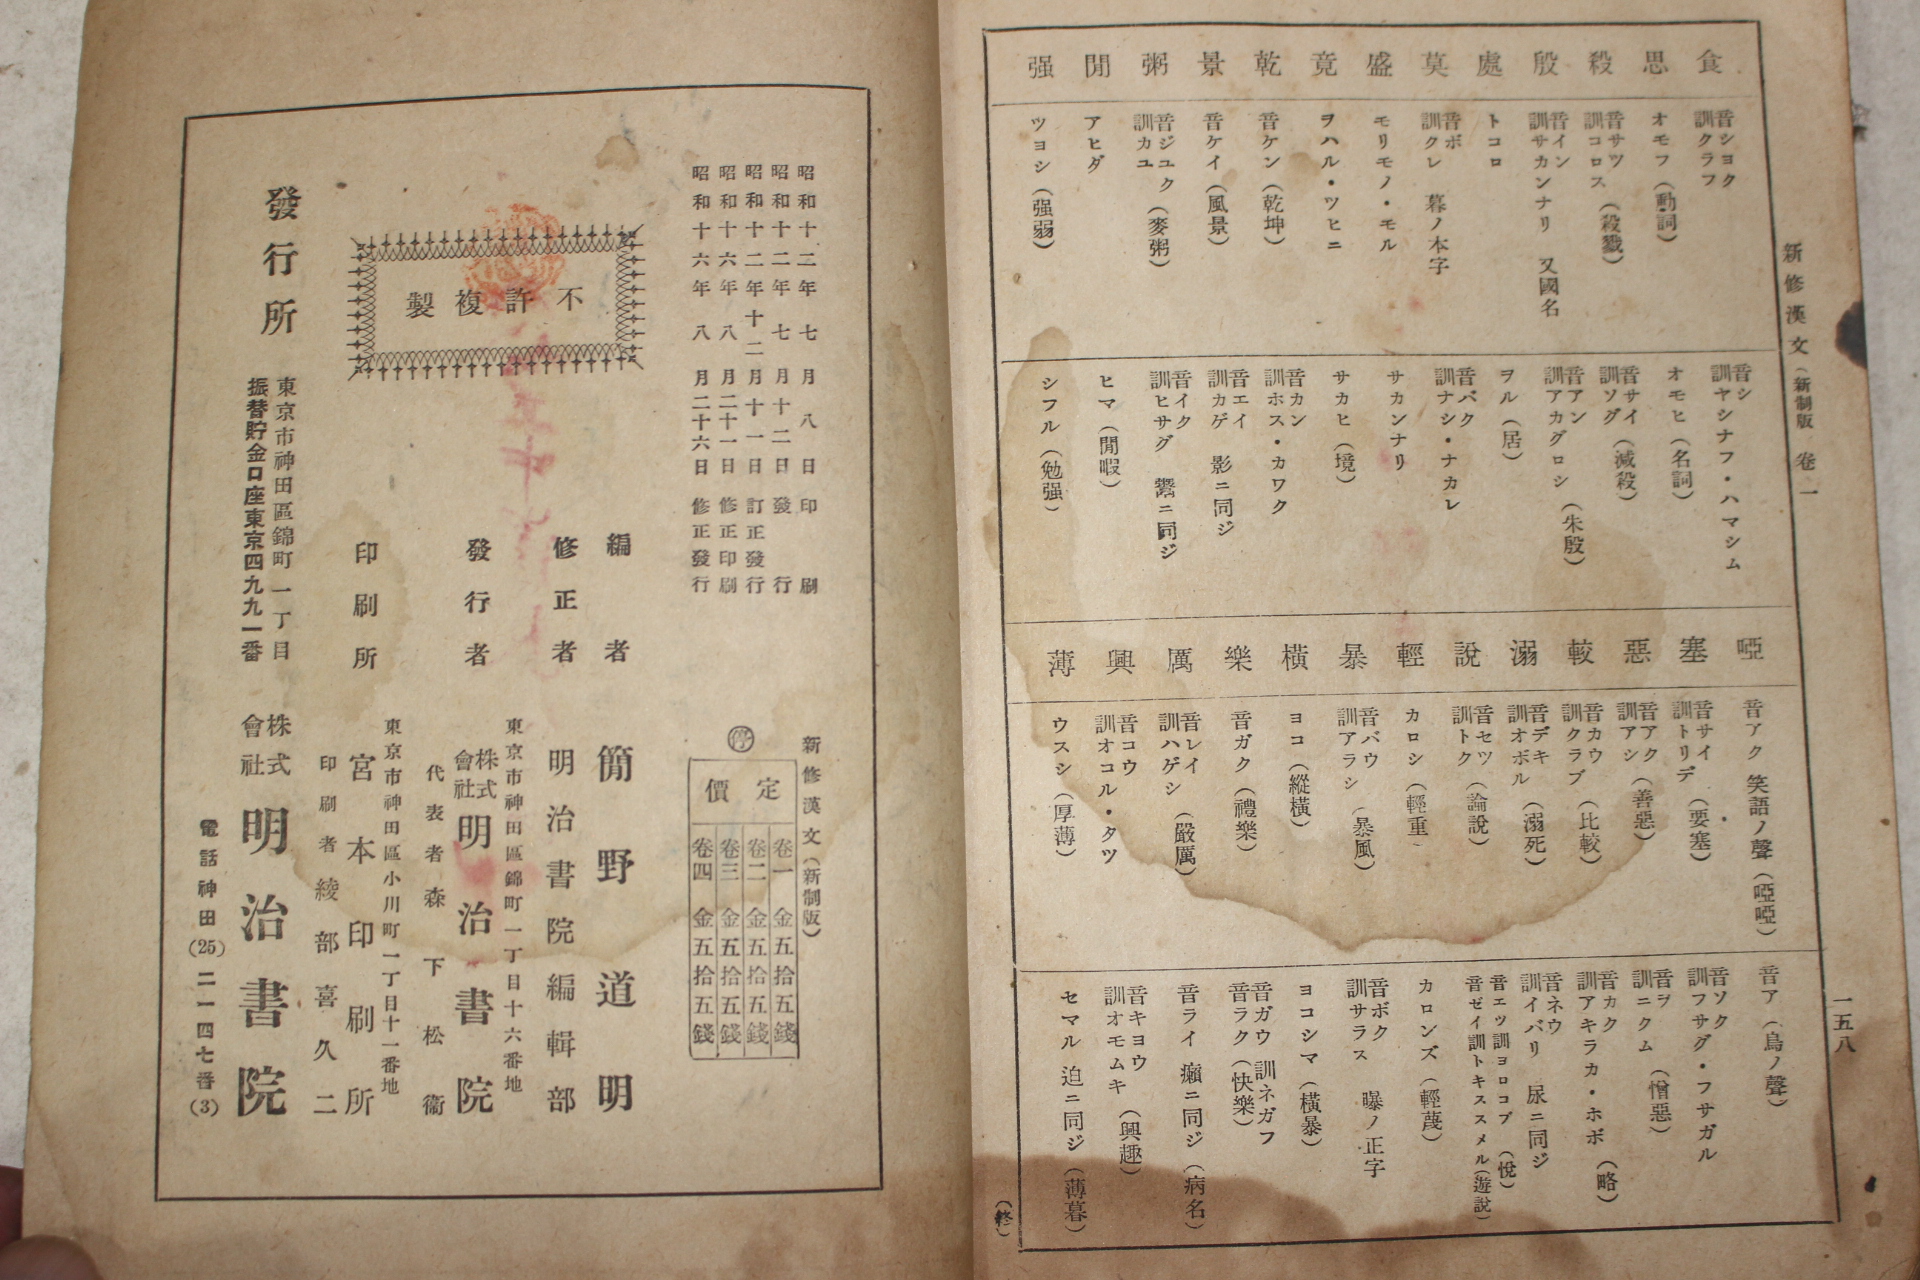 新修漢文（新制版）　卷一
一五八
食
音ショク
訓クラフ
音シ
訓ヤシナフ・ハマシム
思
オモフ（動詞）
オモヒ（名詞）
殺
音サツ
訓コロス（殺戮）
音サイ
訓ソグ（減殺）
殷
音イン
訓サカンナリ　又國名
音アン
訓アカグロシ（朱殷）
處
トコロ
ヲル（居）
莫
音ボ
訓クレ　暮ノ本字
音バク
訓ナシ・ナカレ
盛
モリモノ・モル
サカンナリ
竟
ヲハル・ツヒニ
サカヒ（境）
乾
音ケン（乾坤）
音カン
訓ホス・カワク
景
音ケイ（風景）
音エイ
訓カゲ　影ニ同ジ
粥
音ジユク
訓カユ（麥粥）
音イク
訓ヒサグ　鬻ニ同ジ
閒
アヒダ
ヒマ（閒暇）
强
ツヨシ（强弱）
シフル（勉强）
啞
音アク　笑語ノ聲（啞啞）
音ア（鳥ノ聲）
塞
音サイ
訓トリデ（要塞）
音ソク
訓フサグ・フサガル
惡
音アク
訓アシ（善惡）
音ヲ
訓ニクム（憎惡）
較
音カウ
訓クラブ（比較）
音カク
訓アキラカ・ホボ（略）
溺
音デキ
訓オボル（溺死）
音ネウ
訓イバリ　尿ニ同ジ
說
音セツ
訓トク（論說）
音エツ訓ヨロコブ（悅）
音ゼイ訓トキススメル（遊說）
輕
カロシ（輕重）
カロンズ（輕蔑）
暴
音バウ
訓アラシ（暴風）
音ボク
訓サラス　曝ノ正字
橫
ヨコ（縱橫）
ヨコシマ（橫暴）
樂
音ガク（禮樂）
音ガウ　訓ネガフ
音ラク（快樂）
厲
音レイ
訓ハゲシ（嚴厲）
音ライ　癩ニ同ジ（病名）
興
音コウ
訓オコル・タツ
音キヨウ
訓オモムキ（興趣）
薄
ウスシ（厚薄）
セマル　迫ニ同ジ（薄暮）
（終）
昭和十二年七月八日印刷
昭和十二年七月十二日發行
昭和十二年十二月十一日訂正發行
昭和十六年八月二十一日修正印刷
昭和十六年八月二十六日修正發行
新修漢文（新制版）
停
定價
卷一　金五拾五錢
卷二　金五拾五錢
卷三　金五拾五錢
卷四　金五拾五錢
不許複製
編者　簡野道明
修正者　明治書院編輯部
東京市神田區錦町一丁目十六番地
發行者　株式會社明治書院
代表者　森下松衞
東京市神田區小川町一丁目十一番地
印刷所　宮本印刷所
印刷者　綾部喜久二
發行所
東京市神田區錦町一丁目
振替貯金口座東京四九九一番
株式會社　明治書院
電話神田（25）二一四七番（3）